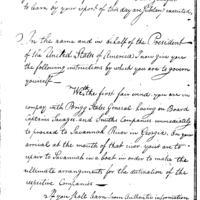 to learn by your report of this day an
In the name and in behalf of the President
of the United States of America I now give you
the following instructions by which you are to govern
yourself
With the first fair wind, you are in
company with Brigg States General having on Board
Captains Savages and Smiths Companies immediately
to proceed to Savannah River in Georgia. On your
arrival at the mouth of that river you are to
repair to Savannah in a boat in order to make the
ultimate arrangements for the destination of the
respective Companies
If you shall learn from authentic information